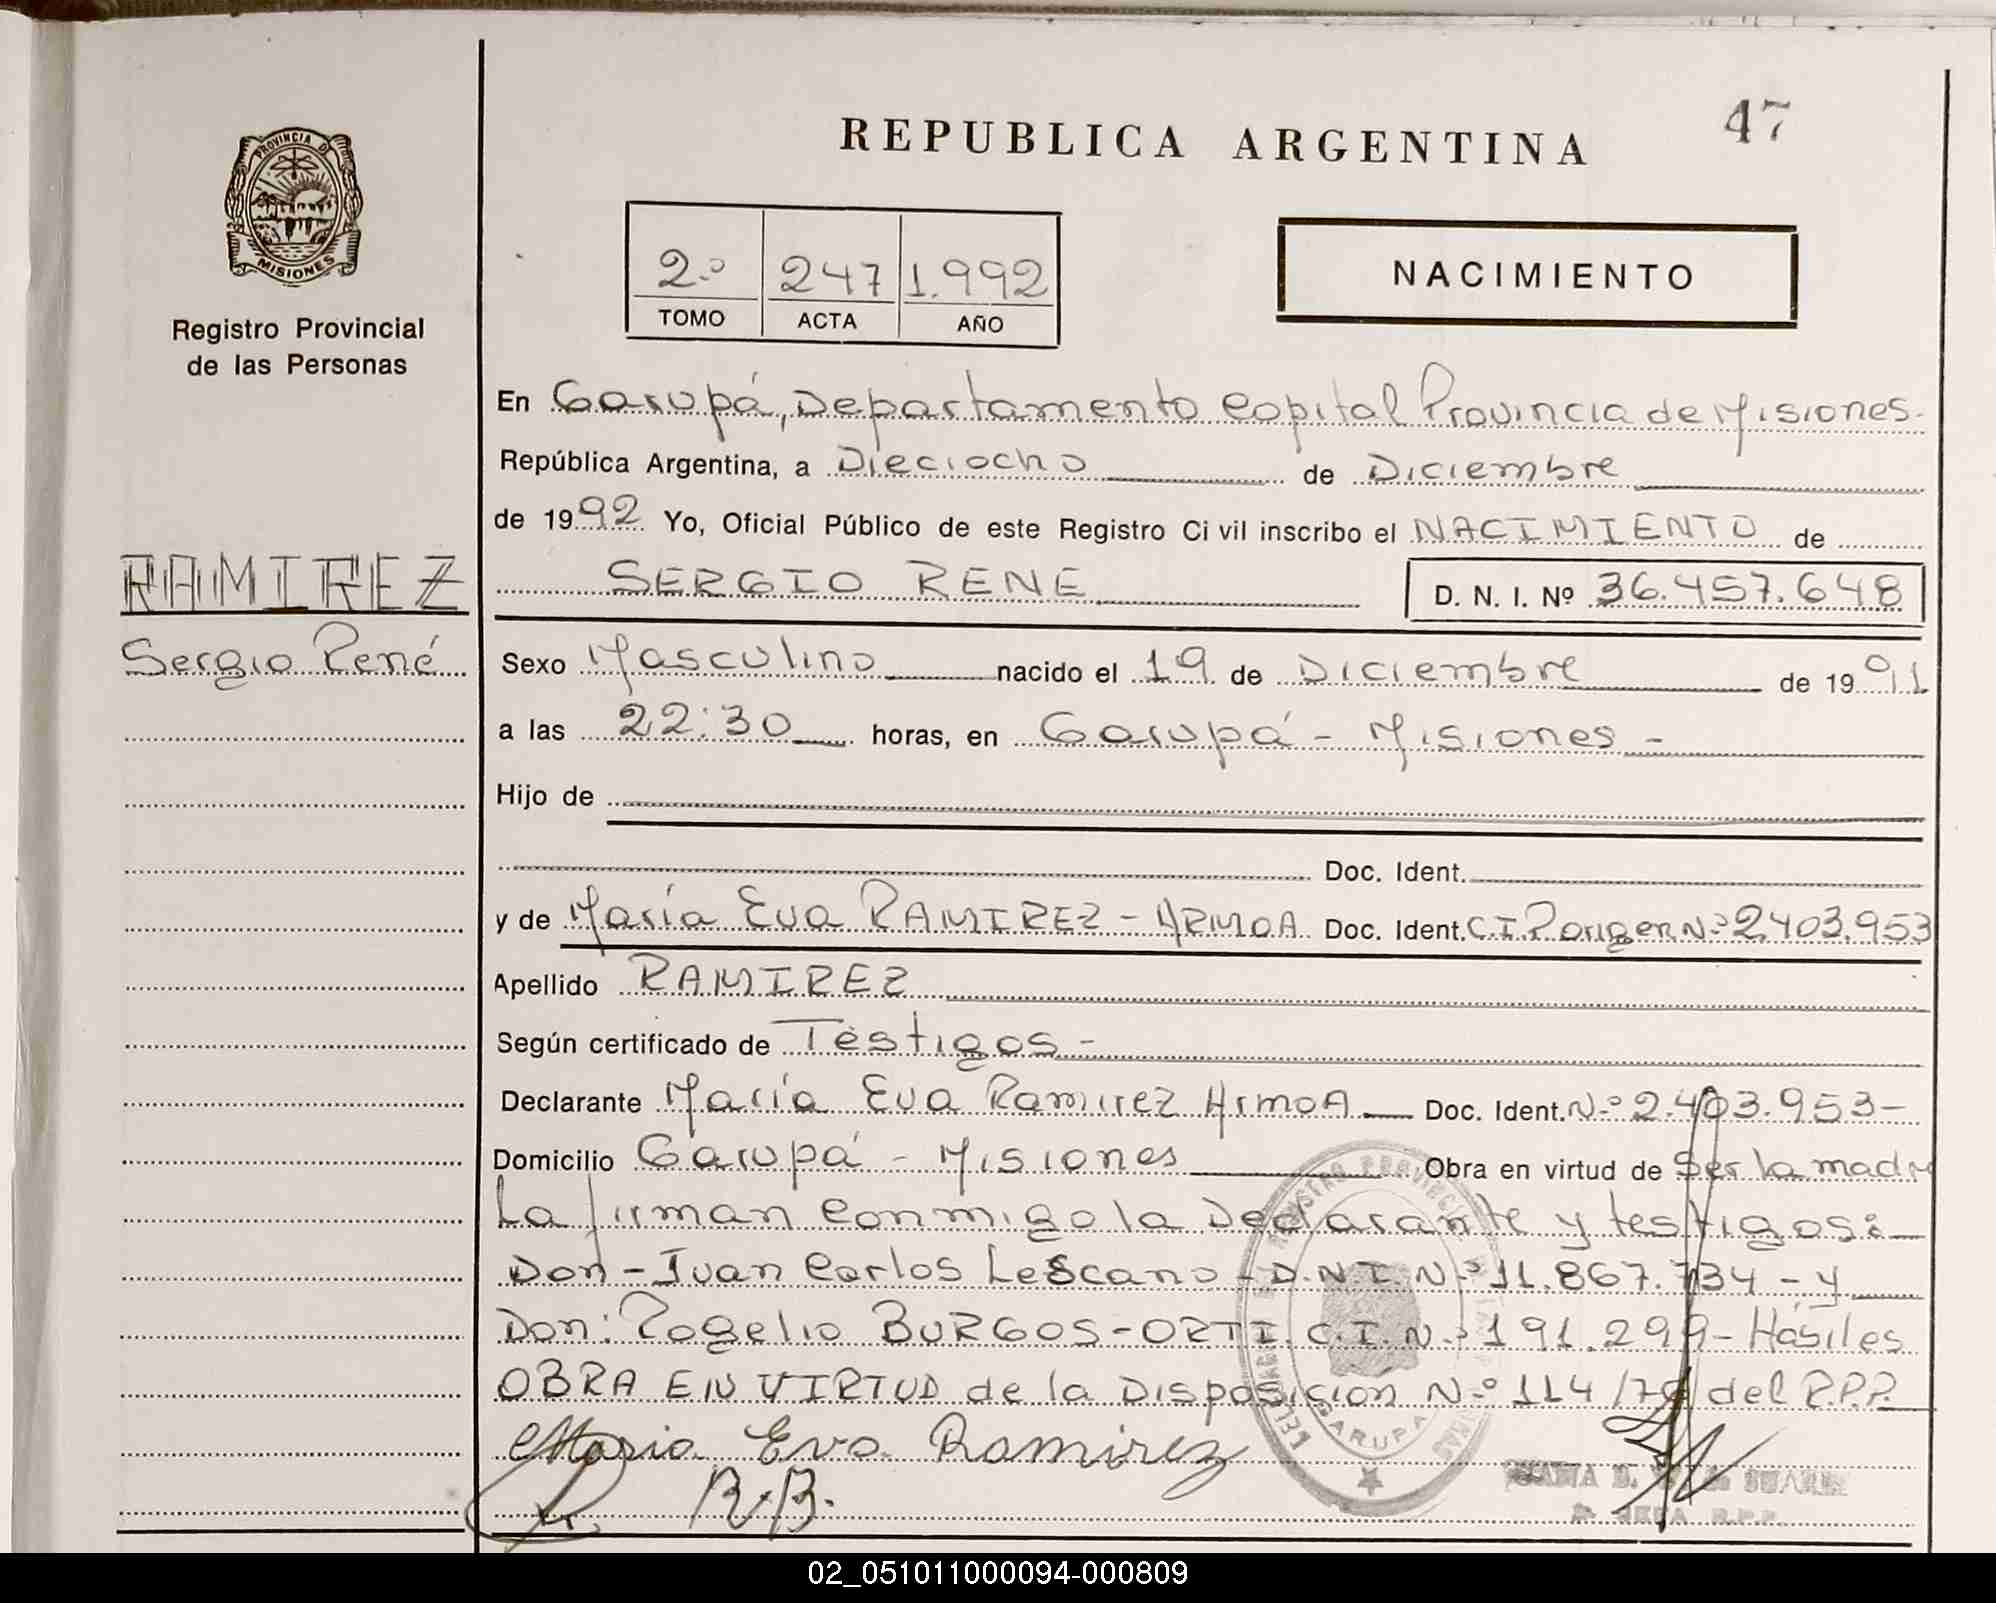 47
REPUBLICA ARGENTINA
PROVINCIA D
MISIONES
Registro Provincial
de las Personas
2.º 247 1.992
TOMO ACTA AÑO
NACIMIENTO
En Garupá, Departamento Capital Provincia de Misiones.
República Argentina, a Dieciocho de Diciembre
de 1992 Yo, Oficial Público de este Registro Civil inscribo el NACIMIENTO de
RAMIREZ
SERGIO RENE D. N. I. Nº 36.457.648
Sergio René
Sexo Masculino nacido el 19 de Diciembre de 1991
a las 22:30 horas, en Garupá - Misiones -
Hijo de
Doc. Ident.
y de María Eva RAMIREZ - ARMOA Doc. Ident. C.I. N.º 2.403.953
Apellido RAMIREZ
Según certificado de Testigos -
Declarante María Eva Ramirez ArmoA Doc. Ident. N.º 2.403.953-
Domicilio Garupá - Misiones Obra en virtud de Ser la madre
La firman conmigo la Declarante y testigos:
Don - Juan Carlos Lescano - D.N.I. N.º 11.867.734 - y
Don: Rogelio BURGOS - ORTI C.I. N.º 191.299 - Hábiles
OBRA EN VIRTUD de la Disposicion N.º 114/79 del R.P.P.
Maria Eva Ramirez
R.B.
GARUPA
JEFA R.P.P.
02_051011000094-000809